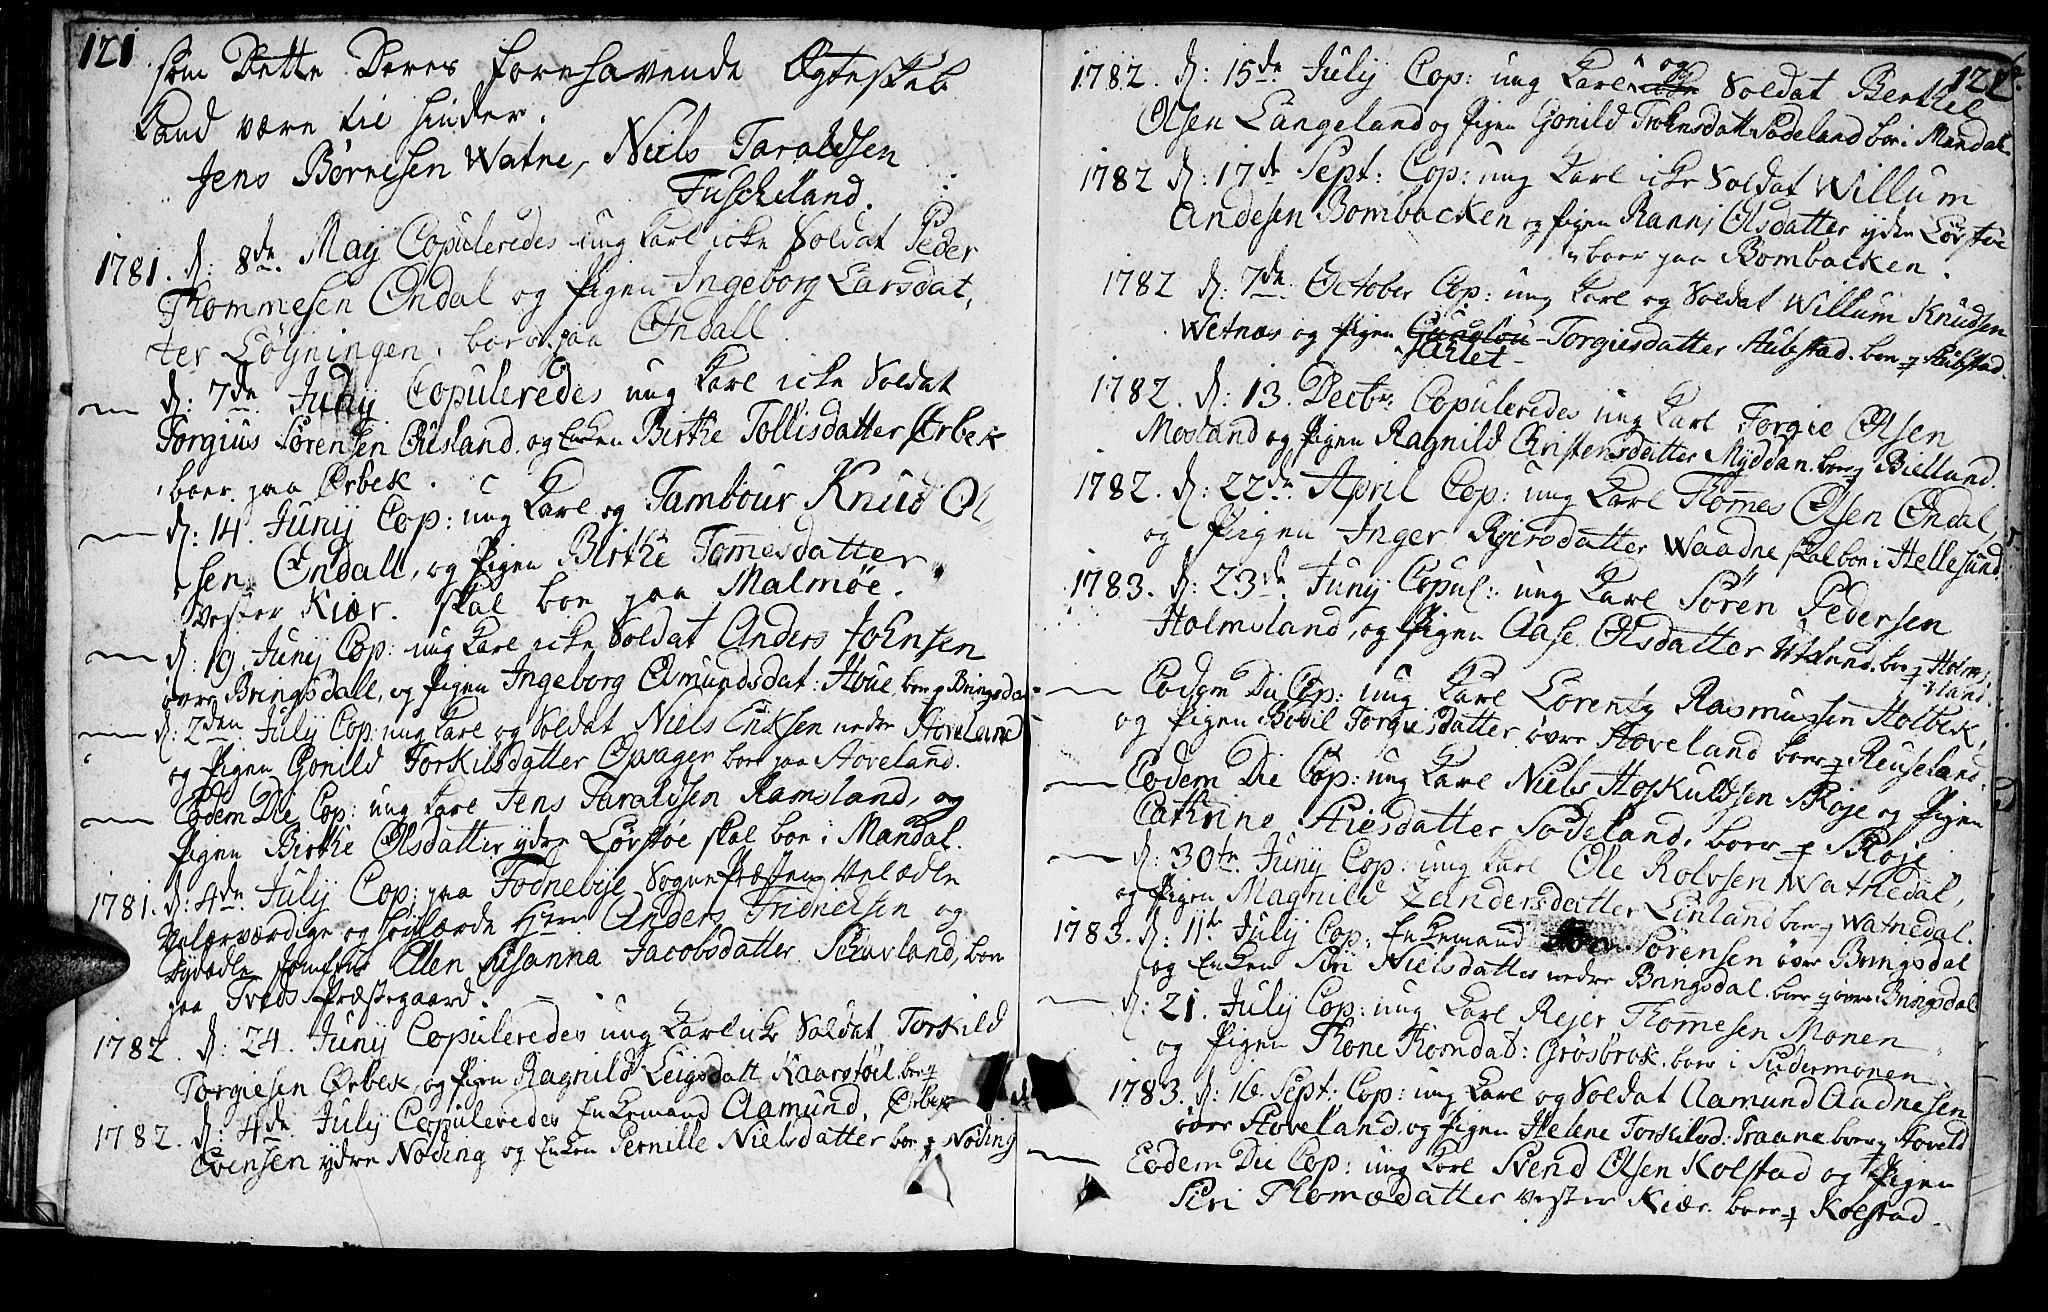 121
som Dette Deres forehavende Ægteskab
kand være til hinder.
Jens Børnesen Watne, Niels Taraldsen
Tuscheland.
1781. d: 8de May Copuleredes ung karl icke Soldat Peder
Thommesen Øndal og Pigen Ingeborg Larsdat,
ter Løgningen, boer paa Øndall.
— d: 7de Juny Copuleredes ung karl icke Soldat
Torgius Sørensen Øuesland og Enken Birthe Tollisdatter Ørbek
boer paa Ørbek.
— d: 14. Juny Cop: ung karl og Tambour Knud Ol
sen Øndall, og Pigen Birthe Tom̄esdatter
Vester Kiær. skal boe paa Malmøe.
— d: 19. Juny Cop: ung karl icke Soldat Anders Johnsen
øvre Bringsdall, og Pigen Ingeborg Omundsdat: Houe, boe p Bringsdal
— d: 2den July Cop: ung karl og Soldat Niels Eriksen nedre Hoveland
og Pigen Gonild Torkilsdatter Opager boer paa Hoveland.
— Eodem Die Cop: ung karl Jens Taraldsen Ramsland, og
Pigen Birthe Olsdatter ydre Løvstøe skal boe i Mandal.
1781. d: 4de July Cop: paa Todnebye Sogne Præsten Velædle
Velærværdige og høilærde Herr Anders Fridrichsen og
Dydædle Jomfrue Ellen Susanna Jacobsdatter Schavland, boer
paa Tveds Præstegaard.
1782. d: 24. Juny Copuleredes ung karl icke Soldat, Torkild
Torgiesen Ørbek, og Pigen Ragnild Leigsdatt Kaarstøel boe p
Ørbek
1782. d: 4de July Copuleredes Enkemand Aamund
Evensen ydre Noding og Enken Pernille Nielsdatter boe p Noding
122.
1782. d: 15de July Cop: ung karl og Soldat Berthel
Olsen Langeland og Pigen Gonild Trohnsdatt Sodeland boe i Mandal.
1782 d: 17de Sept: Cop: ung karl icke Soldat Willum
Andesen Bombacken og Pigen Ranni Olsdatter ydre Løvstøe
boer paa Bombacken.
1782 d: 7de October Cop: ung karl og Soldat Willum Knudsen
Wetnæs og Pigen Gunlou Torgiesdatter Aubstad. boe p Aubstad.
1782. d: 13. Decbr: Copuleredes ung karl Torgie Olsen
Mosland og Pigen Ragnild Christensdatter Myddan. boe p Biellund.
1782. d: 22de April Cop: ung karl Thom̄es Olsen Øndal,
og Pigen Inger Reiersdatter Waadne skal boe i Hellesund.
1783. d: 23de Juny Copul: ung karl Søren Pedersen
Holmsland, og Pigen Aase Olsdatter Utsland. boe p Holms,
land.
— Eodem Die Cop: ung karl Lorentz Rasmussen Holbek,
og Pigen Bodil Torgiesdatter øvre Hoveland boer p Reuseland.
— Eodem Die Cop: ung karl Niels Hoskuldsen Skoje og Pigen
Cathrine Ariesdatter Sodeland, boer p Skoje
— d: 30te Juny Cop: ung karl Ole Rolvsen Wathedal,
og Pigen Magnild Zandersdatter Linland boe p Watnedal.
1783. d: 11te July Cop: Enkemand Sørensen øvre Bringsdal
og Enken Siri Nielsdatter nedre Bringsdal. boer p øvre Bringsdal
— d: 21. July Cop: ung karl Rejer Thom̄esen Monen
og Pigen Thone Thomdat: Grosbrok. boer i Sodermonen
1783. d: 16. Sept: Cop: ung karl og Soldat Aamund Aadnesen
øvre Hoveland, og Pigen Helene Torkilsd: Traane boer p Hoveld
— Eodem Die Cop: ung karl Svend Olsen Kolstad og Pigen
Siri Thomædatter Vester Kiær. boer p Kolstad.